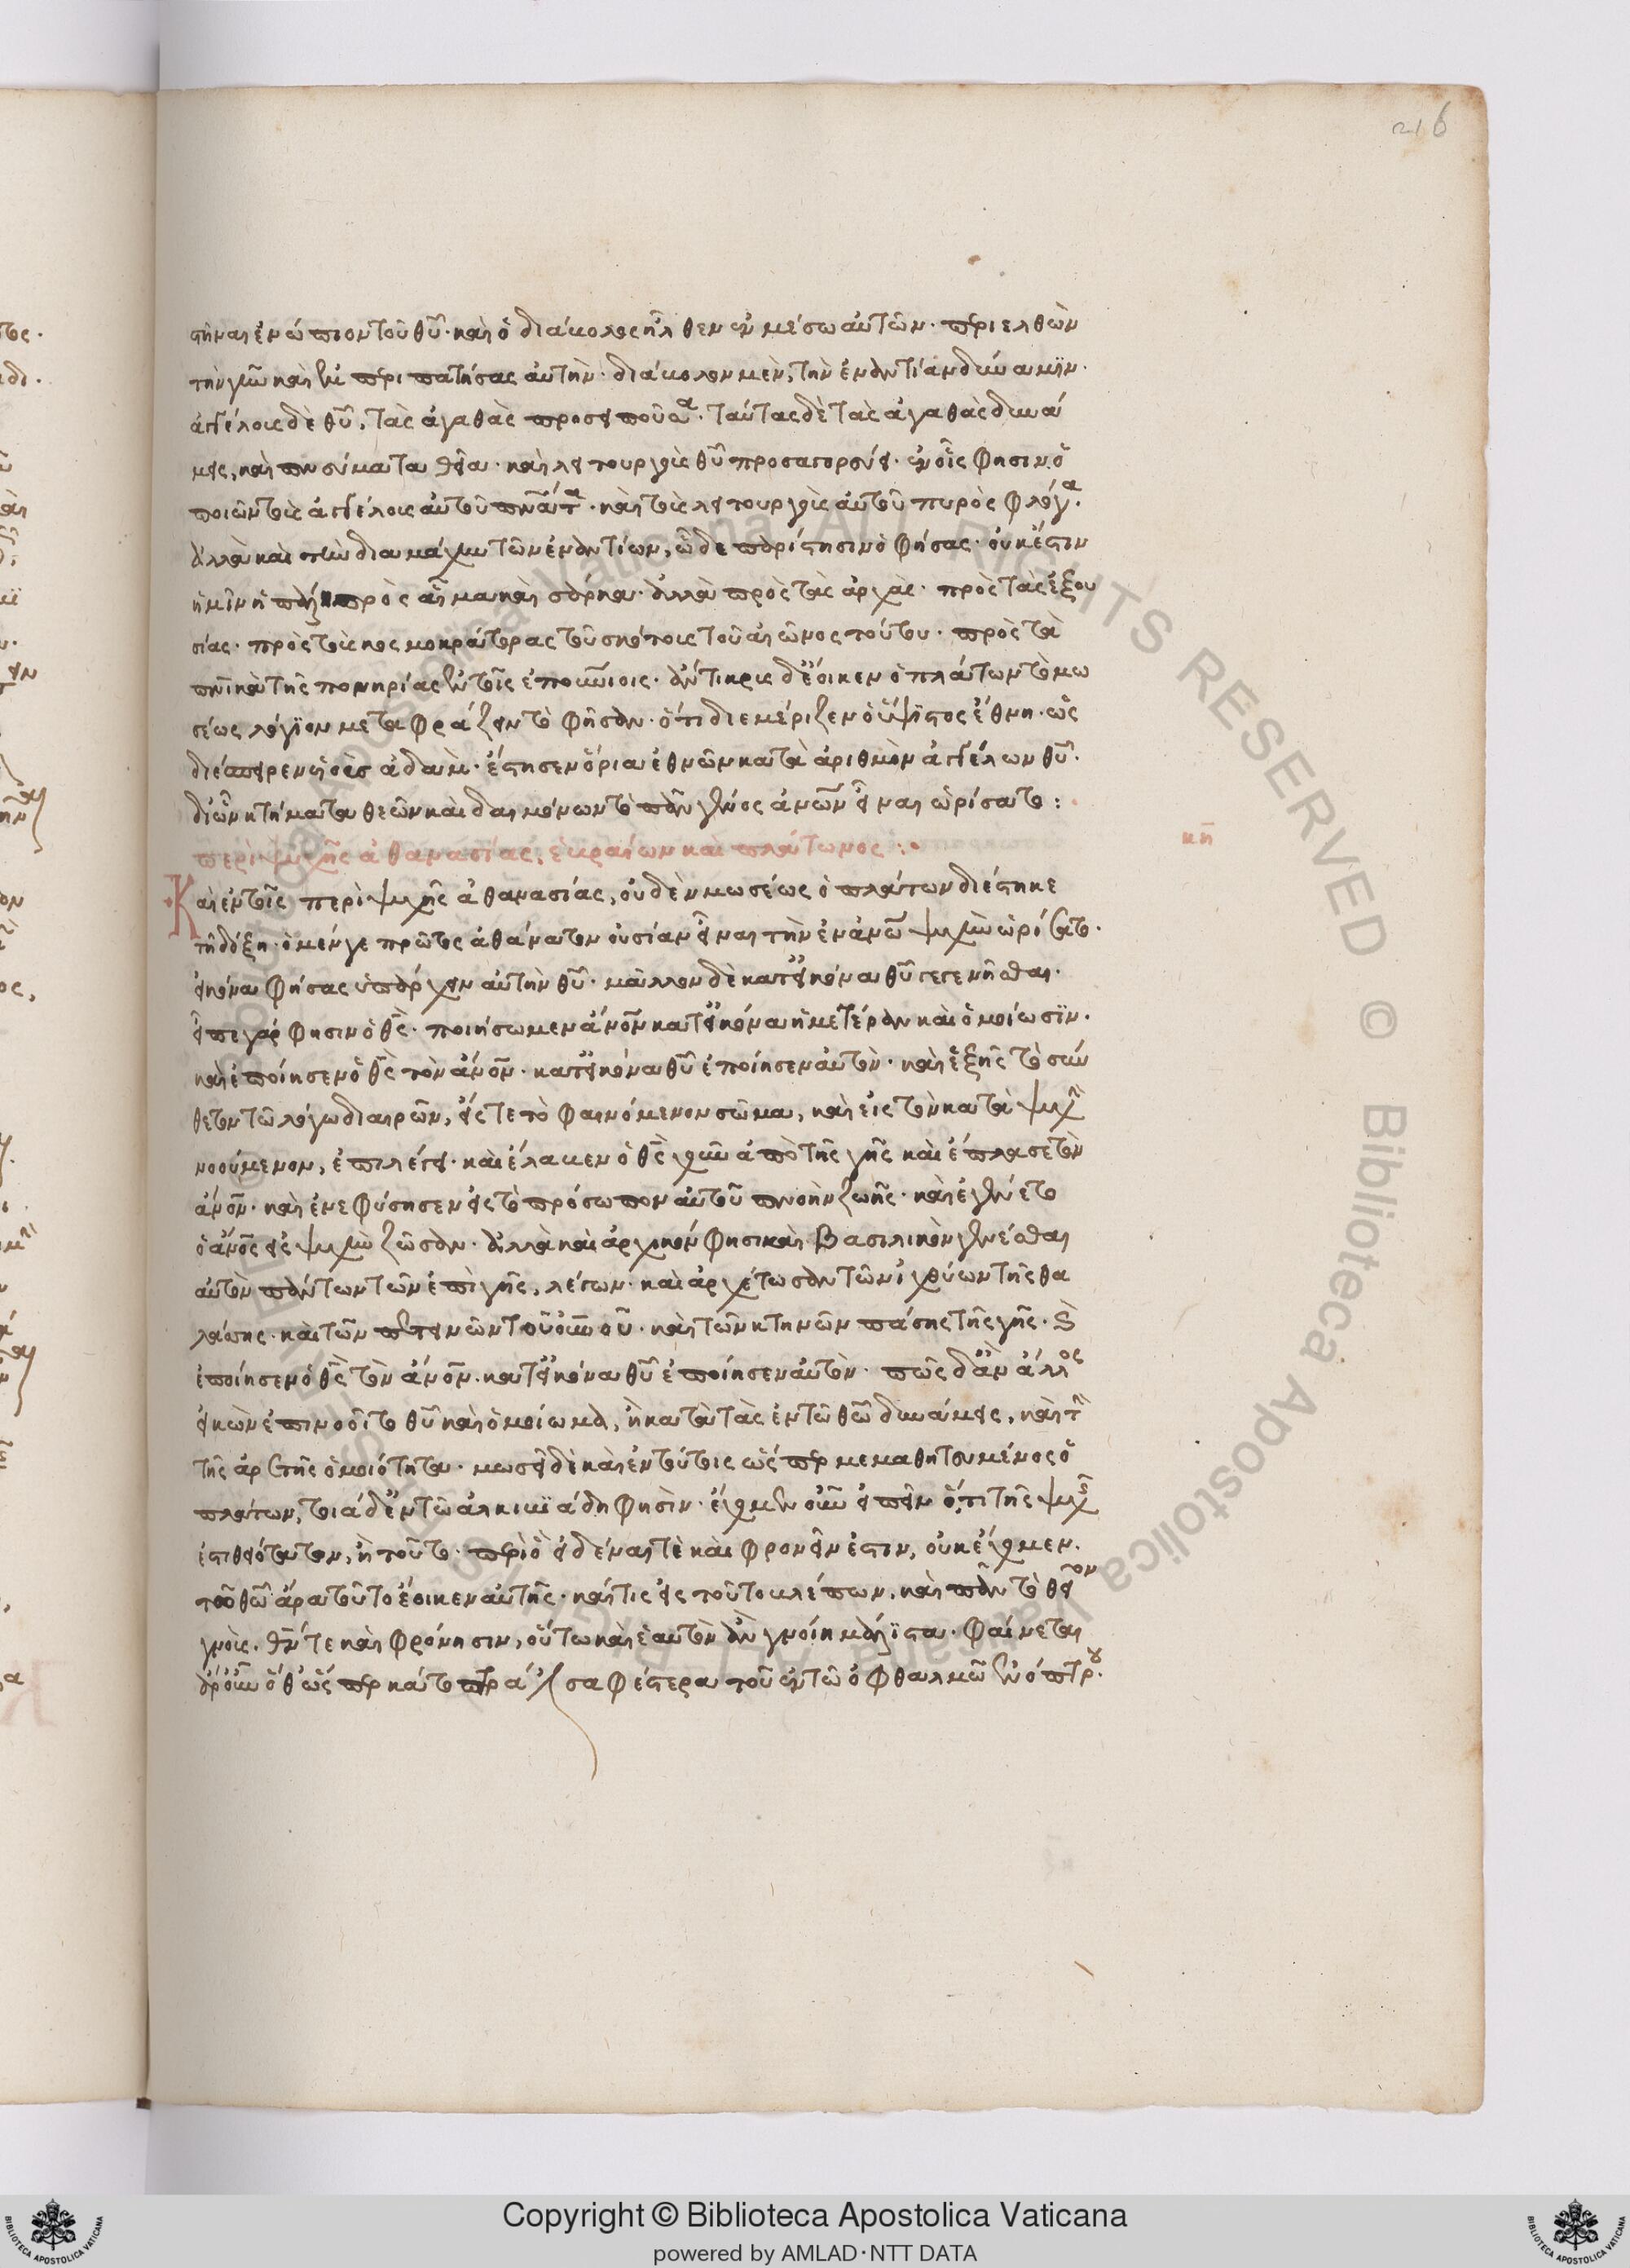 216
στῆναι ἐνώπιον τοῦ θυ̅· καὶ ὁ διάβολος ἦλθεν ἐν μέσω αὐτῶν· περιελθὼν
τὴν γῆν καὶ ἐμπεριπατήσας αὐτήν· διάβολον μὲν, τὴν ἐναντίαν δύναμιν·
ἀγγέλους δὲ θυ̅, τὰς ἀγαθὰς προσειποῦσα· ταύτας δὲ τὰς ἀγαθὰς δυνά
μεις, καὶ πνεύματα θεῖα· καὶ λειτουργοὺς θυ̅ προσαγορεύει· ἐν οἷς φησιν ὁ
ποιῶν τοὺς ἀγγέλους αὐτοῦ πνα̅τα· καὶ τοὺς λειτουργοὺς αὐτοῦ πυρὸς φλόγα·
ἀλλὰ καὶ τὴν διαμάχην τῶν ἐναντίων, ὧδε παρίστησιν ὁ φήσας· οὐκ ἔστιν
ἡμῖν ἡ πάλη πρὸς αἷμα καὶ σάρκα· ἀλλὰ πρὸς τὰς ἀρχάς· πρὸς τὰς ἐξου
σίας· πρὸς τοὺς κοσμοκράτορας τοῦ σκότους τοῦ αἰῶνος τούτου· πρὸς τὰ
πνικὰ τῆς πονηρίας ἐν τοῖς ἐπουνίοις· ἄντικρυς δὲ ἔοικεν ὁ πλάτων τὸ μω
σέως λόγιον μεταφράζειν τὸ φῆσαν· ὅτι διεμέριζεν ὁ ὕψιστος ἔθνη· ὡς
διέσπειρεν υἱοὺς ἀδάμ· ἔστησεν ὅρια ἐθνῶν κατὰ ἀριθμὸν ἀγγέλων θυ̅·
δι' ὧν κτήματα θεῶν καὶ δαιμόνων τὸ πᾶν γένος ἀνων εἶναι ὡρίσατο:
περὶ ψυχῆς ἀθανασίας, ἑβραίων καὶ πλάτωνος:· κη
Καὶ ἐν τοῖς περὶ ψυχῆς ἀθανασίας, οὐδὲν μωσέως ὁ πλάτων διέστηκε
τῆ δόξη· ὁ μέν γε πρῶτος ἀθάνατον οὐσίαν εἶναι τὴν ἐν ἀνω ψυχὴν ὡρίσατο·
εἰκόνα φήσας ὑπάρχειν αὐτὴν θυ̅· μᾶλλον δὲ κατ' εἰκόνα θυ̅ γεγενῆσθαι·
εἶπε γάρ φησιν ὁ θς· ποιήσωμεν ἄνον κατ' εἰκόνα ἡμετέραν καὶ ὁμοίωσιν·
καὶ ἐποίησεν ὁ θς τὸν ἄνον· κατ' εἰκόνα θυ̅ ἐποίησεν αὐτόν· καὶ ἑξῆς τὸ σύν
θετον τῶ λόγω διαιρῶν, εἴς τε τὸ φαινόμενον σῶμα, καὶ εἰς τὸν κατὰ ψυχὴν
νοούμενον, ἐπιλέγει· καὶ ἔλαβεν ὁ θς χοῦν ἀπὸ τῆς γῆς καὶ ἔπλασε τὸν
ἄνον· καὶ ἐνεφύσησεν εἰς τὸ πρόσωπον αὐτοῦ πνοὴν ζωῆς· καὶ ἐγένετο
ὁ ἄνος εἰς ψυχὴν ζῶσαν· ἀλλὰ καὶ ἀρχικόν φησι καὶ βασιλικὸν γενέσθαι
αὐτὸν πάντων τῶν ἐπὶ γῆς, λέγων· καὶ ἀρχέτωσαν τῶν ἰχθύων τῆς θα
λάσσης· καὶ τῶν πετεινῶν τοῦ οὐνου· καὶ τῶν κτηνῶν πάσης τῆς γῆς· καὶ
ἐποίησεν ὁ θς τὸν ἄνον· κατ' εἰκόνα θυ̅ ἐποίησεν αὐτόν· πῶς δ' ἂν ἄλλως
εἰκὼν ἐπινοοῖτο θυ̅ καὶ ὁμοίωμα, ἢ κατὰ τὰς ἐν τῶ θω δυνάμεις, καὶ τὴν
τῆς ἀρετῆς ὁμοιότητα· μωσεῖ δὲ κἀν τούτοις ὥσπερ μεμαθητευμένος ὁ
πλάτων, τοιάδε ἐν τῶ ἀλκιβιάδη φησίν· ἔχομεν οὖν εἰπεῖν ὅ,τι τῆς ψυχῆς
ἐστὶ θειότατον, ἢ τοῦτο· περὶ ὃ εἰδέναι τὲ καὶ φρονεῖν ἐστιν, οὐκ ἔχομεν·
τῶ θω ἄρα τοῦτο ἔοικεν αὐτῆς· καί τις εἰς τοῦτο βλέπων, καὶ πᾶν τὸ θεῖον
γνοὺς, θν τε καὶ φρόνησιν, οὕτω καὶ ἑαυτὸν ἂν γνοίη μάλιστα· φαίνεται
ἆρ' οὖν ὅθ' ὥσπερ κάτοπτρά ἐστι σαφέστερα τοῦ ἐν τῶ ὀφθαλμῶ ἐνόπτρου·